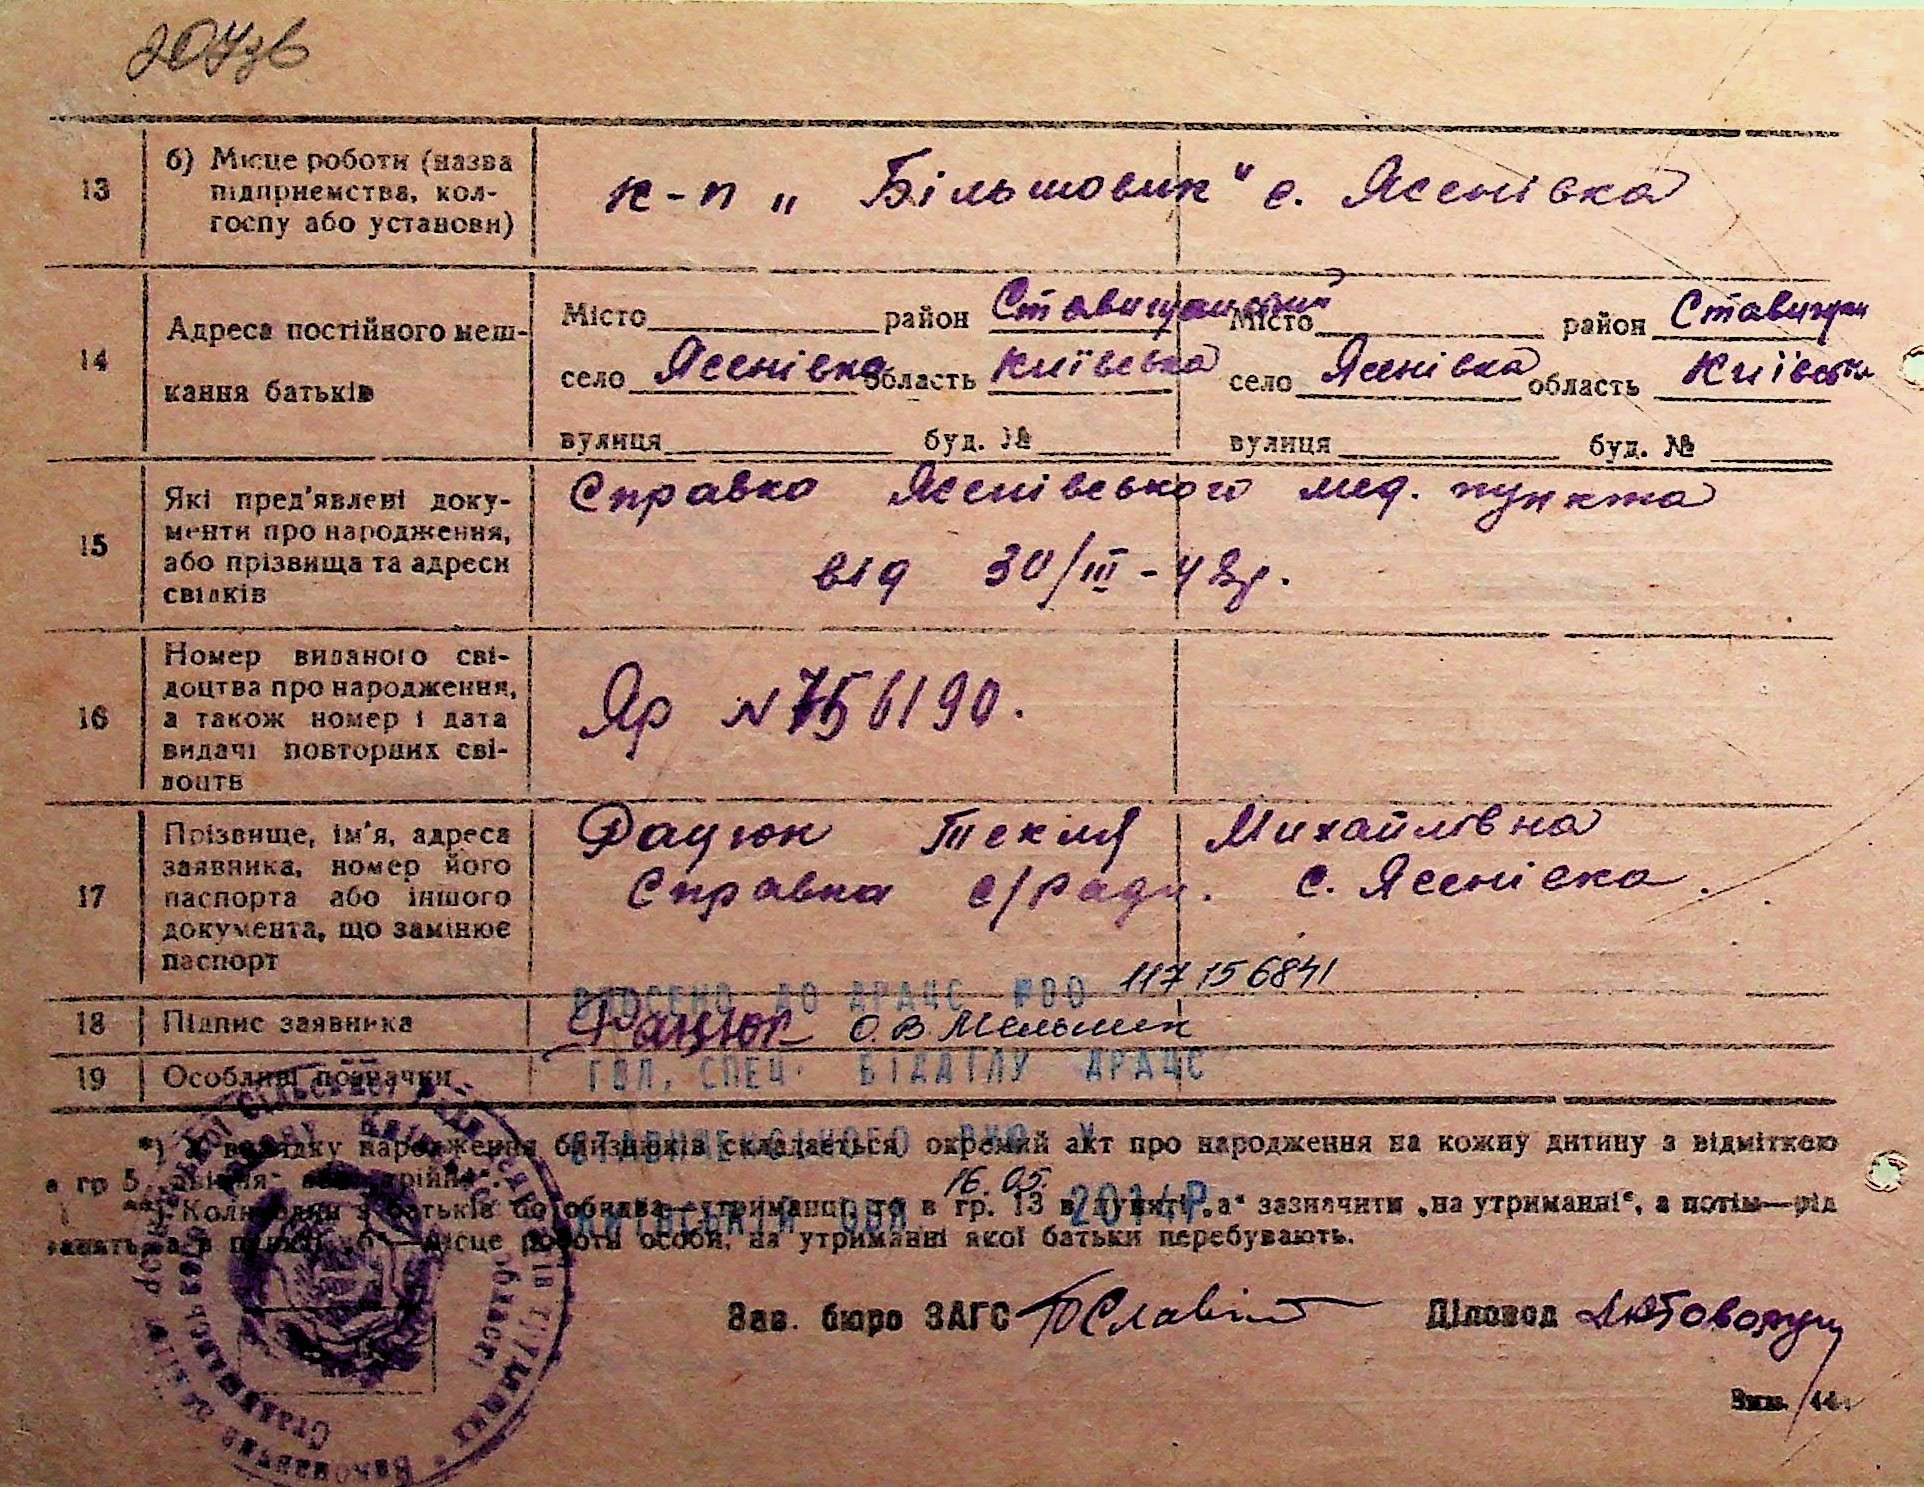 13
б) Місце роботи (назва
підприємства, кол-
госпу або установи)
к-п „Більшовик" с. Ясенівка
14
Адреса постійного меш-
кання батьків
Місто район Ставищанський
село Ясенівка область Київська
вулиця буд. №
Місто район Ставищан
село Ясенівка область Київська
вулиця буд. №
15
Які пред'явлені доку-
менти про народження,
або прізвища та адреси
свідків
Справка Ясенівського мед. пункта
від 30/III-42р.
16
Номер виданого сві-
доцтва про народження,
а також номер і дата
видачі повторних сві-
доцтв
Яр N 756190.
17
Прізвище, ім'я, адреса
заявника, номер його
паспорта або іншого
документа, що замінює
паспорт
Фацюк Текля Михайлівна
Справка с/Ради. с. Ясенівка.
ВНЕСЕНО ДО ДРАЦС 117 156841
18
Підпис заявника
Фацюк О.В. Мельник
19
Особливі позначки
ГОЛ. СПЕЦ. ВІДДІЛУ ДРАЦС
*) У випадку народження близнюків складається окремий акт про народження на кожну дитину з відміткою
в гр 5
16.05. 2014Р
**) Коли один з батьків або обидва—утриманці, то в гр. 13 в пункті „а" зазначити „на утриманні", а потім—рід
занять, а в пункті „б"—місце роботи особи, на утриманні якої батьки перебувають.
Зав. бюро ЗАГС
Діловод